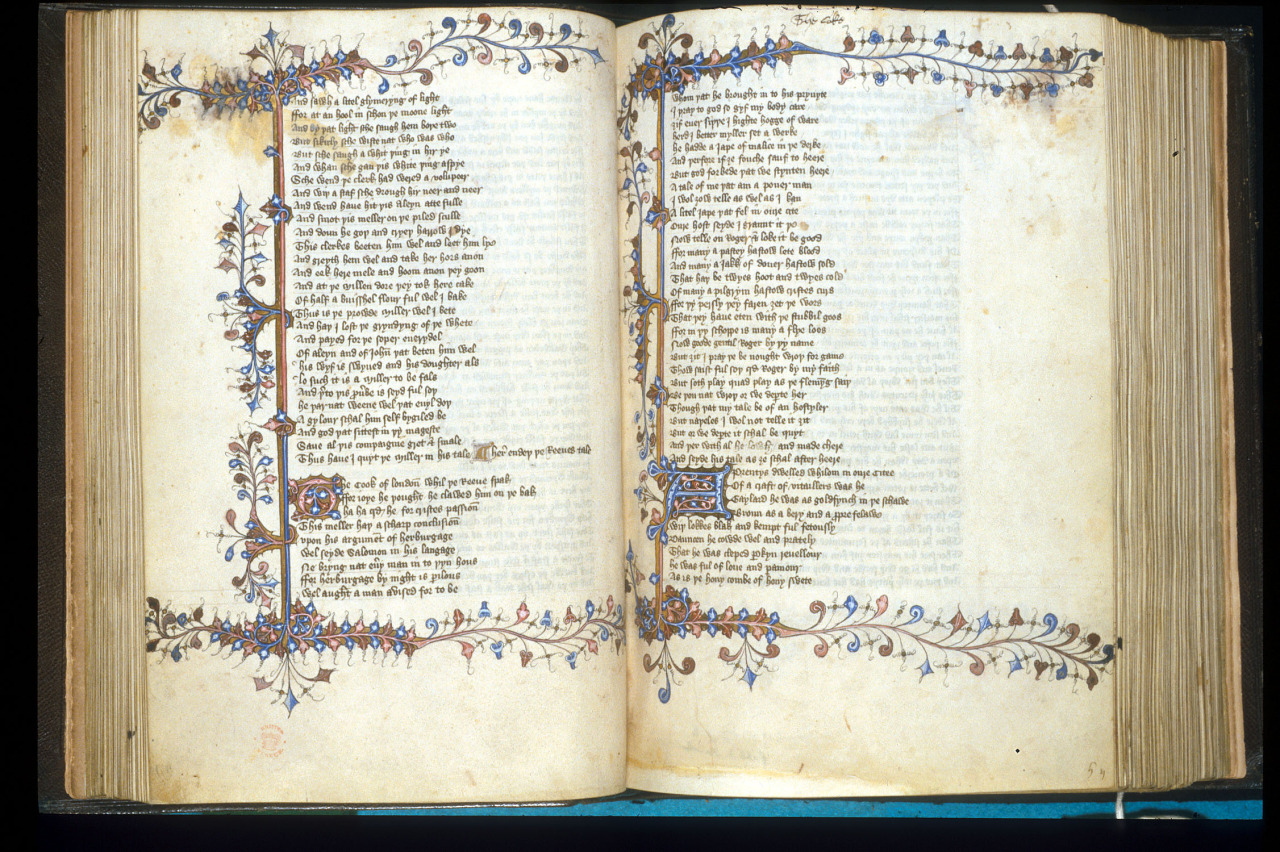 And sawh a litel glymeryng of light
ffor at an hool in schon þe moone light
And by þat light sche saugh hem boþe two
But sikurly sche wiste nat who was who
But sche saugh a whit þing in hir ye
And whan sche gan þis white þing aspye
Sche wend þe clerk had wered a volupeer
And wiþ a staf sche drough hir neer and neer
And wend haue hit þis Aleyn atte fulle
And smot þis meller on þe piled sculle
And doun he goþ and cryeþ harrow I dye
This clerkes beeten him wel and leet him lye
And greyth hem wel and take her hors anon
And eek here mele and hoom anon þey goon
And at þe millen dore ȝet þey tok here cake
Of half a buisshel flour ful wel I bake
Thus is þe prowde miller wel I bete
And haþ I lost þe gryndyng of þe whete
And payed for þe soper euerydel
Of aleyn and of John þat beten him wel
his wyf is swyued and his doughter als
lo such it is a miller to be fals
And þerto þis prouerbe is seyd ful soþ
he þar nat weene wel þat euyl doþ
A gylour schal him self bygiled be
And god þat sittest in þy mageste
Saue al þis compaignie gret & smale
Thus haue I quyt þe miller in his tale her endeþ þe Reeues tale
The Cook of londoun whil þe Reeue spak
ffor ioye he þought he clawed him on þe bak
ha ha qd he for cristes passioun
This meller haþ a scharp conclusioun
vpon his argument of herburgage
wel seyde Salomon in his langage
Ne bryng nat euery man in to þyn hous
ffor herburgage by night is perilous
wel aught a man avised for to be
The Coke
whom þat he brought in to his pryuyte
I pray to god so gyf my body care
ȝif euer siþþe I highte hogge of ware
herd I better myller set a werke
he hadde a Jape of malice in þe derke
And þerfore if ȝe fouche sauf to heere
But god forbede þat we stynten heere
A tale of me þat am a pouer man
I wol ȝow telle as wel as I kan
A litel Jape þat fel in oure cite
Oure host seyde I graunt it þe
Now telle on Roger & loke it be good
ffor many a pastey hastow lete blood
And many a Jakk of Douer hastow sold
That haþ be twyes hoot and twyes cold
Of many a pilgrym hastow cristes curs
ffor þy persly þey faren ȝet þe wors
That þey haue eten with þe stubbil goos
ffor in þy schoppe is many a flye loos
Now goode gentil Roger by þy name
But ȝit I pray þe be nought wroþ for game
Thow saist ful soþ qd Roger by my faith
But soth play quad play as þe flemyng saiþ
Be þou nat wroþ or we departe her
Though þat my tale be of an hostyler
But naþeles I wol not telle it ȝit
But or we departe it schal be quyt
And þer with al he and made chere
And seyde his tale as ȝe schal after heere
A Prentys dwelled whilom in oure Citee
Of a craft of vitaillers was he
Gaylard he was as goldfynch in þe schawe
Broun as a bery and a propre felawe
wiþ lokkes blak and kempt ful fetously
Dauncen he cowde wel and prately
That he was cleped Perkyn reuellour
he was ful of loue and paramour
As is þe hony combe of hony swete